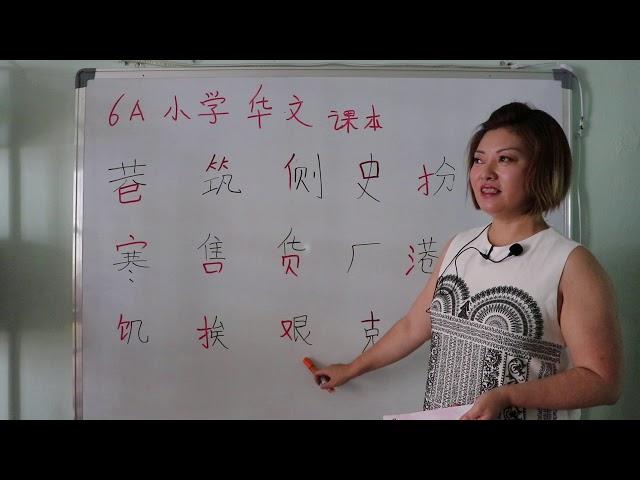 6A 小学 华文 课本
巷 筑 侧 史 扮
寒 售 货 厂 港
饥 挨 艰 克